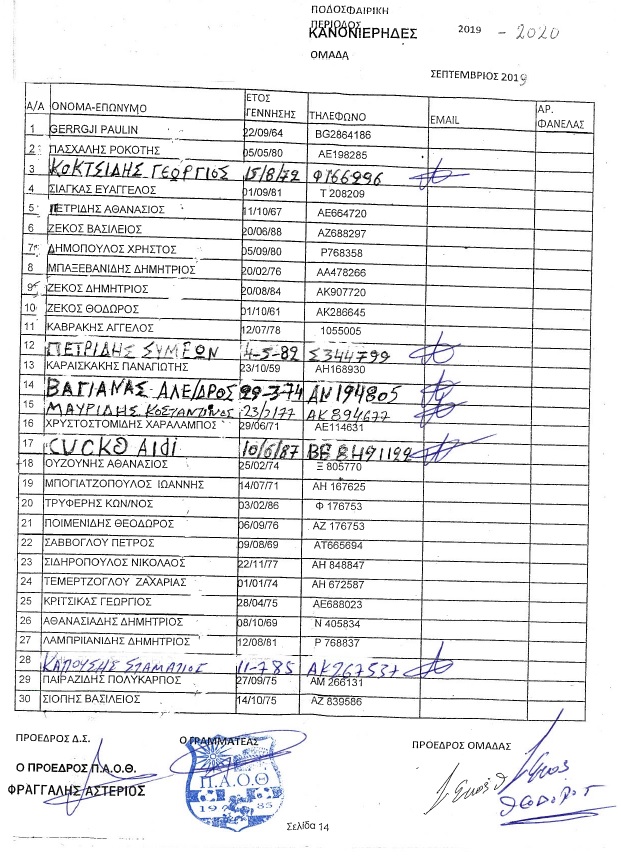 ΠΟΔΟΣΦΑΙΡΙΚΗ
ΠΕΡΙΟΔΟΣ 2019 - 2020
ΚΑΝΟΝΙΕΡΗΔΕΣ
ΟΜΑΔΑ
ΣΕΠΤΕΜΒΡΙΟΣ 2019
Α/Α ΟΝΟΜΑ-ΕΠΩΝΥΜΟ ΕΤΟΣ ΓΕΝΝΗΣΗΣ ΤΗΛΕΦΩΝΟ EMAIL ΑΡ. ΦΑΝΕΛΑΣ
1 GERRGJI PAULIN 22/09/64 BG2864186
2 ΠΑΣΧΑΛΗΣ ΡΟΚΟΤΗΣ 05/05/80 ΑΕ198285
3 ΚΟΚΤΣΙΔΗΣ ΓΕΩΡΓΙΟΣ 15/8/72 Φ166296
4 ΣΙΑΓΚΑΣ ΕΥΑΓΓΕΛΟΣ 01/09/81 Τ 208209
5 ΠΕΤΡΙΔΗΣ ΑΘΑΝΑΣΙΟΣ 11/10/67 ΑΕ664720
6 ΖΕΚΟΣ ΒΑΣΙΛΕΙΟΣ 20/06/88 ΑΖ688297
7 ΔΗΜΟΠΟΥΛΟΣ ΧΡΗΣΤΟΣ 05/09/80 Ρ768358
8 ΜΠΑΞΕΒΑΝΙΔΗΣ ΔΗΜΗΤΡΙΟΣ 20/02/76 ΑΑ478266
9 ΖΕΚΟΣ ΔΗΜΗΤΡΙΟΣ 20/08/84 ΑΚ907720
10 ΖΕΚΟΣ ΘΟΔΩΡΟΣ 01/10/61 ΑΚ286645
11 ΚΑΒΡΑΚΗΣ ΑΓΓΕΛΟΣ 12/07/78 1055005
12 ΠΕΤΡΙΔΗΣ ΣΥΜΕΩΝ 4-5-82 Σ344799
13 ΚΑΡΑΙΣΚΑΚΗΣ ΠΑΝΑΓΙΩΤΗΣ 23/10/59 ΑΗ168930
14 ΒΑΓΙΑΝΑΣ ΑΛΕΔΡΟΣ 29-3-74 ΑΝ194805
15 ΜΑΥΡΙΔΗΣ ΚΩΣΤΑΝΤΙΝΟΣ 23/2/77 ΑΚ894677
16 ΧΡΥΣΤΟΣΤΟΜΙΔΗΣ ΧΑΡΑΛΑΜΠΟΣ 29/06/71 ΑΕ114631
17 CUCKO AIDI 10/6/87 BE8491122
18 ΟΥΖΟΥΝΗΣ ΑΘΑΝΑΣΙΟΣ 25/02/74 Ξ 805770
19 ΜΠΟΓΙΑΤΖΟΠΟΥΛΟΣ ΙΩΑΝΝΗΣ 14/07/71 ΑΗ 167625
20 ΤΡΥΦΕΡΗΣ ΚΩΝ/ΝΟΣ 03/02/86 Φ 176753
21 ΠΟΙΜΕΝΙΔΗΣ ΘΕΟΔΩΡΟΣ 06/09/76 ΑΖ 176753
22 ΣΑΒΒΟΓΛΟΥ ΠΕΤΡΟΣ 09/08/69 ΑΤ665694
23 ΣΙΔΗΡΟΠΟΥΛΟΣ ΝΙΚΟΛΑΟΣ 22/11/77 ΑΗ 848847
24 ΤΕΜΕΡΤΖΟΓΛΟΥ ΖΑΧΑΡΙΑΣ 01/01/74 ΑΗ 672587
25 ΚΡΙΤΣΙΚΑΣ ΓΕΩΡΓΙΟΣ 28/04/75 ΑΕ688023
26 ΑΘΑΝΑΣΙΑΔΗΣ ΔΗΜΗΤΡΙΟΣ 08/10/69 Ν 405834
27 ΛΑΜΠΡΙΑΝΙΔΗΣ ΔΗΜΗΤΡΙΟΣ 12/08/81 Ρ 768837
28 ΚΑΠΟΥΣΗΣ ΣΤΑΜΑΤΙΟΣ 11-7-85 ΑΚ267537
29 ΠΑΙΡΑΖΙΔΗΣ ΠΟΛΥΚΑΡΠΟΣ 27/09/75 ΑΜ 266131
30 ΣΙΟΠΗΣ ΒΑΣΙΛΕΙΟΣ 14/10/75 ΑΖ 839586
ΠΡΟΕΔΡΟΣ Δ.Σ. Ο ΓΡΑΜΜΑΤΕΑΣ ΠΡΟΕΔΡΟΣ ΟΜΑΔΑΣ
Ο ΠΡΟΕΔΡΟΣ Π.Α.Ο.Θ.
ΦΡΑΓΓΑΛΗΣ ΑΣΤΕΡΙΟΣ
Π.Α.Ο.Θ
1985
Σελίδα 14